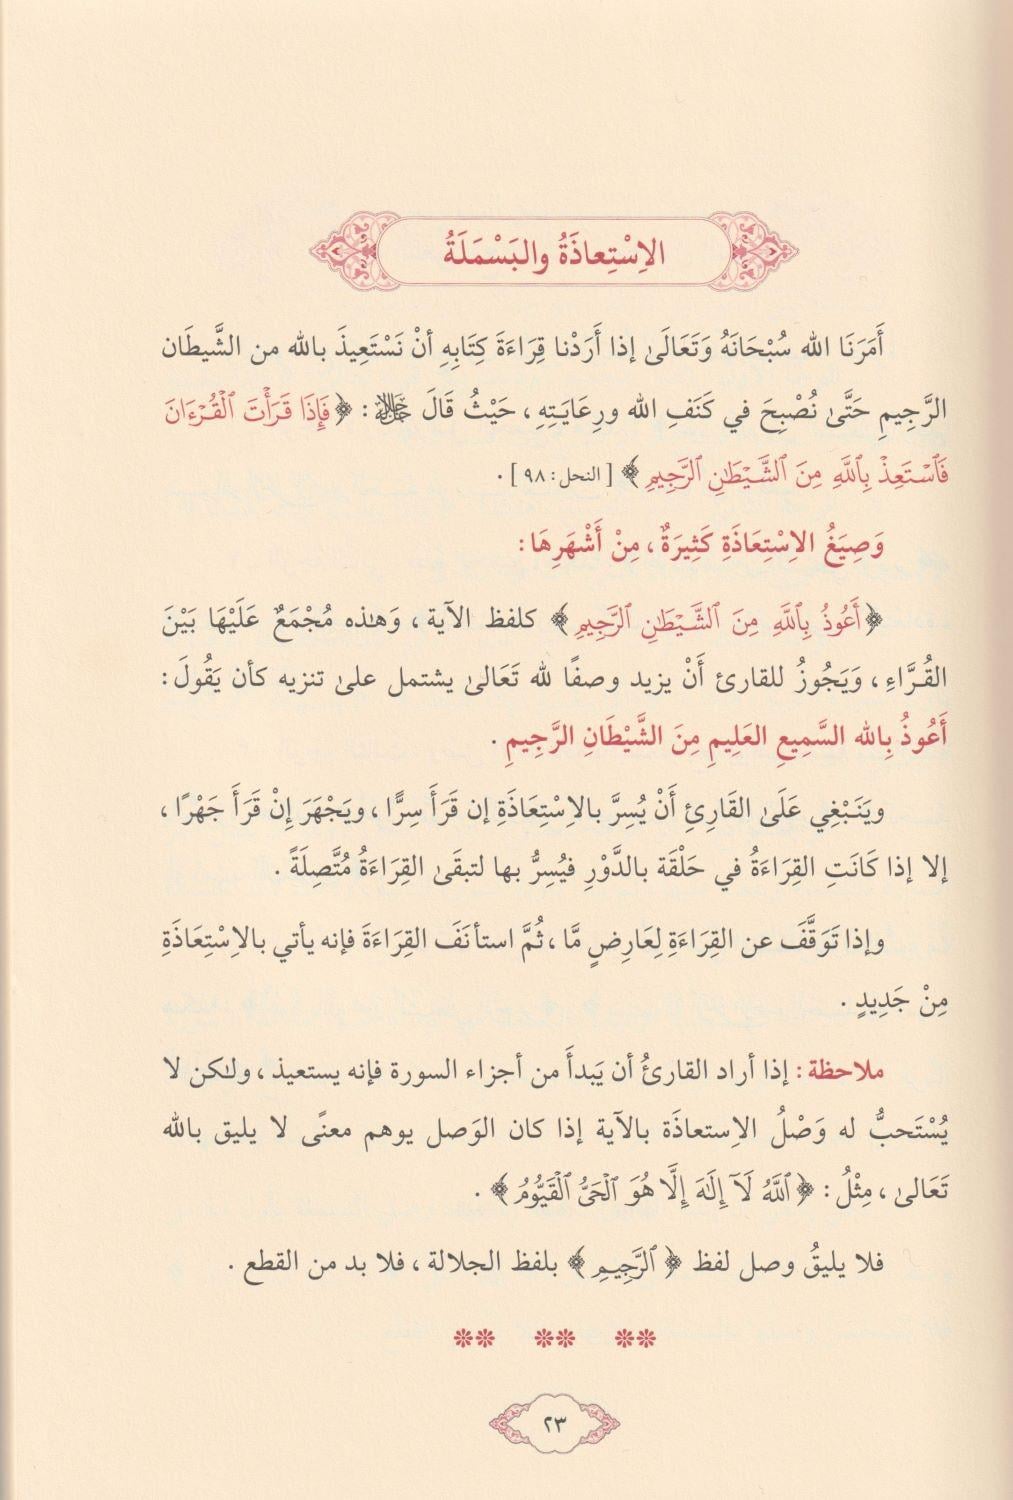 الاِسْتِعاذَةُ والبَسْمَلَةُ
أَمَرَنَا الله سُبْحَانَهُ وَتَعَالَىٰ إذا أَرَدْنا قِرَاءَةَ كِتَابِهِ أنْ نَسْتَعِيذَ بالله من الشَّيطَان
الرَّجِيمِ حَتَّىٰ نُصْبِحَ في كَنَفِ الله ورِعَايَتِهِ ، حَيْثُ قَالَ ﷻ : ﴿ فَإِذَا قَرَأْتَ ٱلْقُرْءَانَ
فَٱسْتَعِذْ بِٱللَّهِ مِنَ ٱلشَّيْطَٰنِ ٱلرَّجِيمِ ﴾ [ النحل : ٩٨ ] .
وَصِيَغُ الاِسْتِعَاذَةِ كَثِيرَةٌ ، مِنْ أَشْهَرِهَا :
﴿ أَعُوذُ بِٱللَّهِ مِنَ ٱلشَّيْطَٰنِ ٱلرَّجِيمِ ﴾ كلفظ الآية ، وَهـٰذه مُجْمَعٌ عَلَيْهَا بَيْنَ
القُرَّاءِ ، وَيَجُوزُ للقارئ أَنْ يزيد وصفًا لله تَعَالىٰ يشتمل علىٰ تنزيه كأن يَقُولَ :
أَعُوذُ بِالله السَّمِيعِ العَلِيمِ مِنَ الشَّيْطَانِ الرَّجِيمِ .
ويَنَبْغِي عَلَىٰ القَارِئِ أَنْ يُسِرَّ بالاِسْتِعَاذَةِ إن قَرَأَ سِرًّا ، ويَجْهَرَ إنْ قَرَأَ جَهْرًا ،
إلا إذا كَانَتِ القِرَاءَةُ في حَلْقَة بالدَّوْرِ فيُسِرُّ بها لتبقَىٰ القِرَاءَةُ مُتَّصِلَةً .
وإذا تَوَقَّفَ عن القِرَاءَةِ لِعَارِضٍ مَّا ، ثُمَّ استأنَفَ القِرَاءَةَ فإنه يأتي بالاِسْتِعَاذَةِ
مِنْ جَدِيدٍ .
ملاحظة : إذا أراد القارئُ أن يَبدأَ من أجزاء السورة فإنه يستعيذ ، ولـٰكن لا
يُسْتَحبُّ له وَصْلُ الاِستعاذَة بالآية إذا كان الوَصل يوهم معنًى لا يليق بالله
تَعَالىٰ ، مِثْلُ : ﴿ ٱللَّهُ لَآ إِلَٰهَ إِلَّا هُوَ ٱلْحَىُّ ٱلْقَيُّومُ ﴾ .
فلا يليقُ وصل لفظ ﴿ ٱلرَّجِيمِ ﴾ بلفظ الجلالة ، فلا بد من القطع .
٢٣